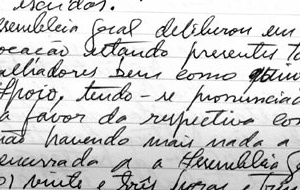 escidos.
ssembleia Geral deliberou em
ocacao estando presentes to
alhadores bem como
Apoio, tendo-se pronunciad
a favor da respectiva con
não havendo mais nada a
encerrada a a Assembleia G
vinte e três horas e tri